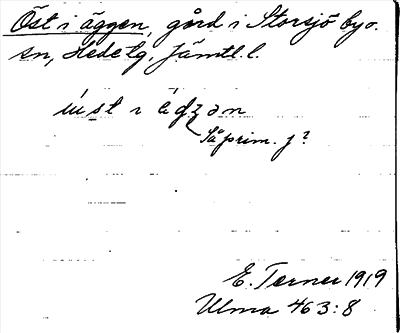 Öst i äggen, gård i Storsjö by o.
sn, Hede tg, Jämtl. l.
Så prim. j?
E. Terner 1919
Ulma 463:8